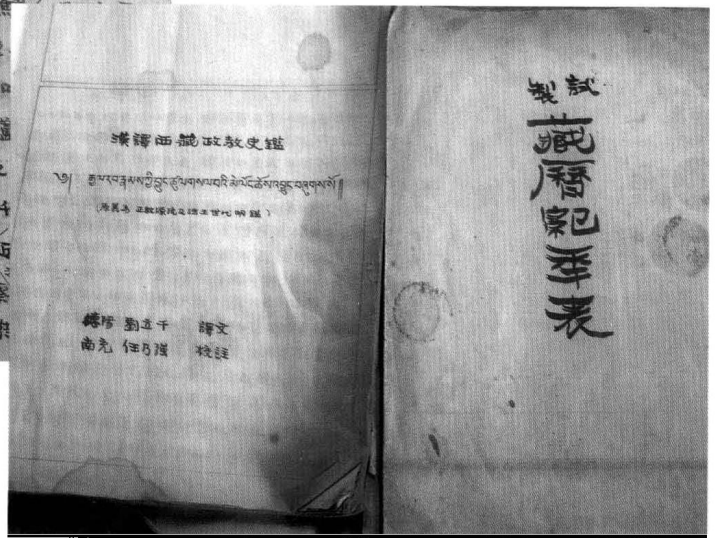 漢譯西藏政教史鑑
༄༅། རྒྱལ་རབས་རྣམས་ཀྱི་བྱུང་ཚུལ་གསལ་བའི་མེ་ལོང་ཆོས་འབྱུང་བཞུགས་སོ།།
正教源流及諸王世代明鑑）
劉立千 譯文
南充 任乃强 校註
試製
藏曆紀年表